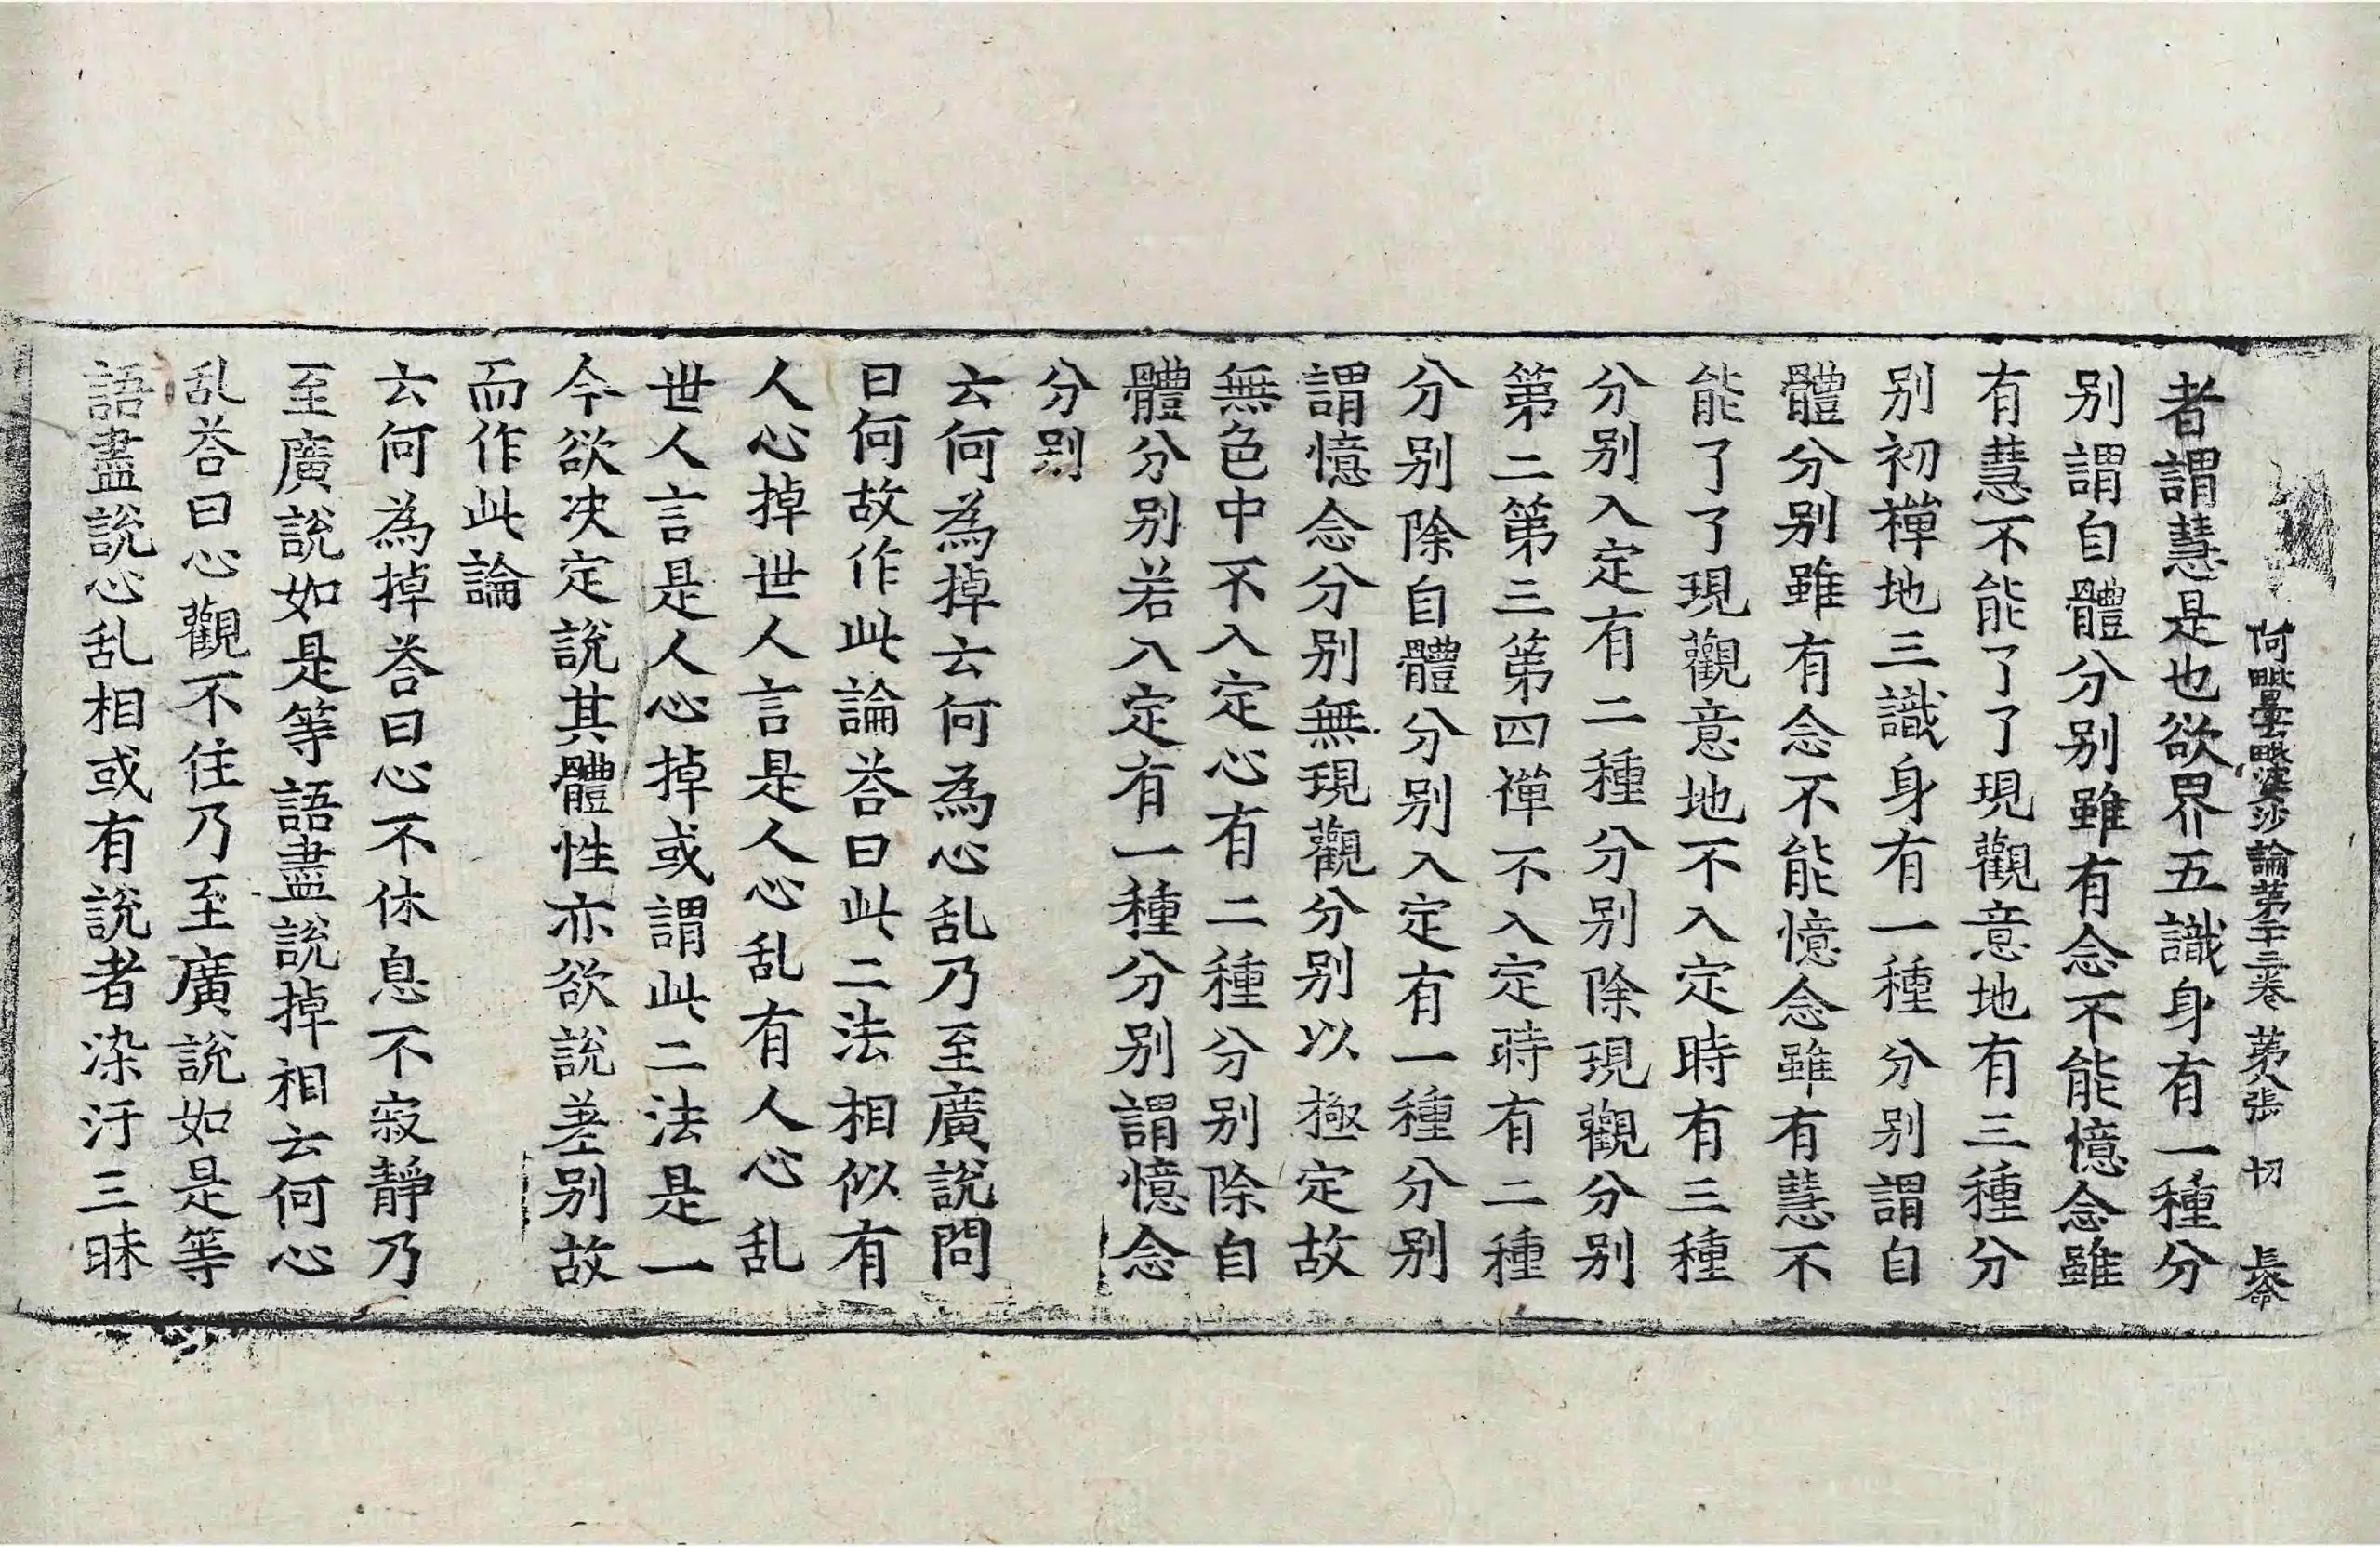 阿毗曇毗婆沙論第二十三卷 第八張 切 長命
者謂慧是也欲界五識身有一種分
別謂自體分別雖有念不能憶念雖
有慧不能了了現觀意地有三種分
別初禪地三識身有一種分別謂自
體分別雖有念不能憶念雖有慧不
能了了現觀意地不入定時有三種
分別入定有二種分別除現觀分別
第二第三第四禪不入定時有二種
分別除自體分別入定有一種分別
謂憶念分別無現觀分別以極定故
無色中不入定心有二種分別除自
體分別若入定有一種分別謂憶念
分別
云何為掉云何為心乱乃至廣說問
曰何故作此論荅曰此二法相似有
人心掉世人言是人心乱有人心乱
世人言是人心掉或謂此二法是一
今欲决定說其體性亦欲說差別故
而作此論
云何為掉荅曰心不休息不寂靜乃
至廣說如是等語盡說掉相云何心
乱荅曰心觀不住乃至廣說如是等
語盡說心乱相或有說者染汙三昧